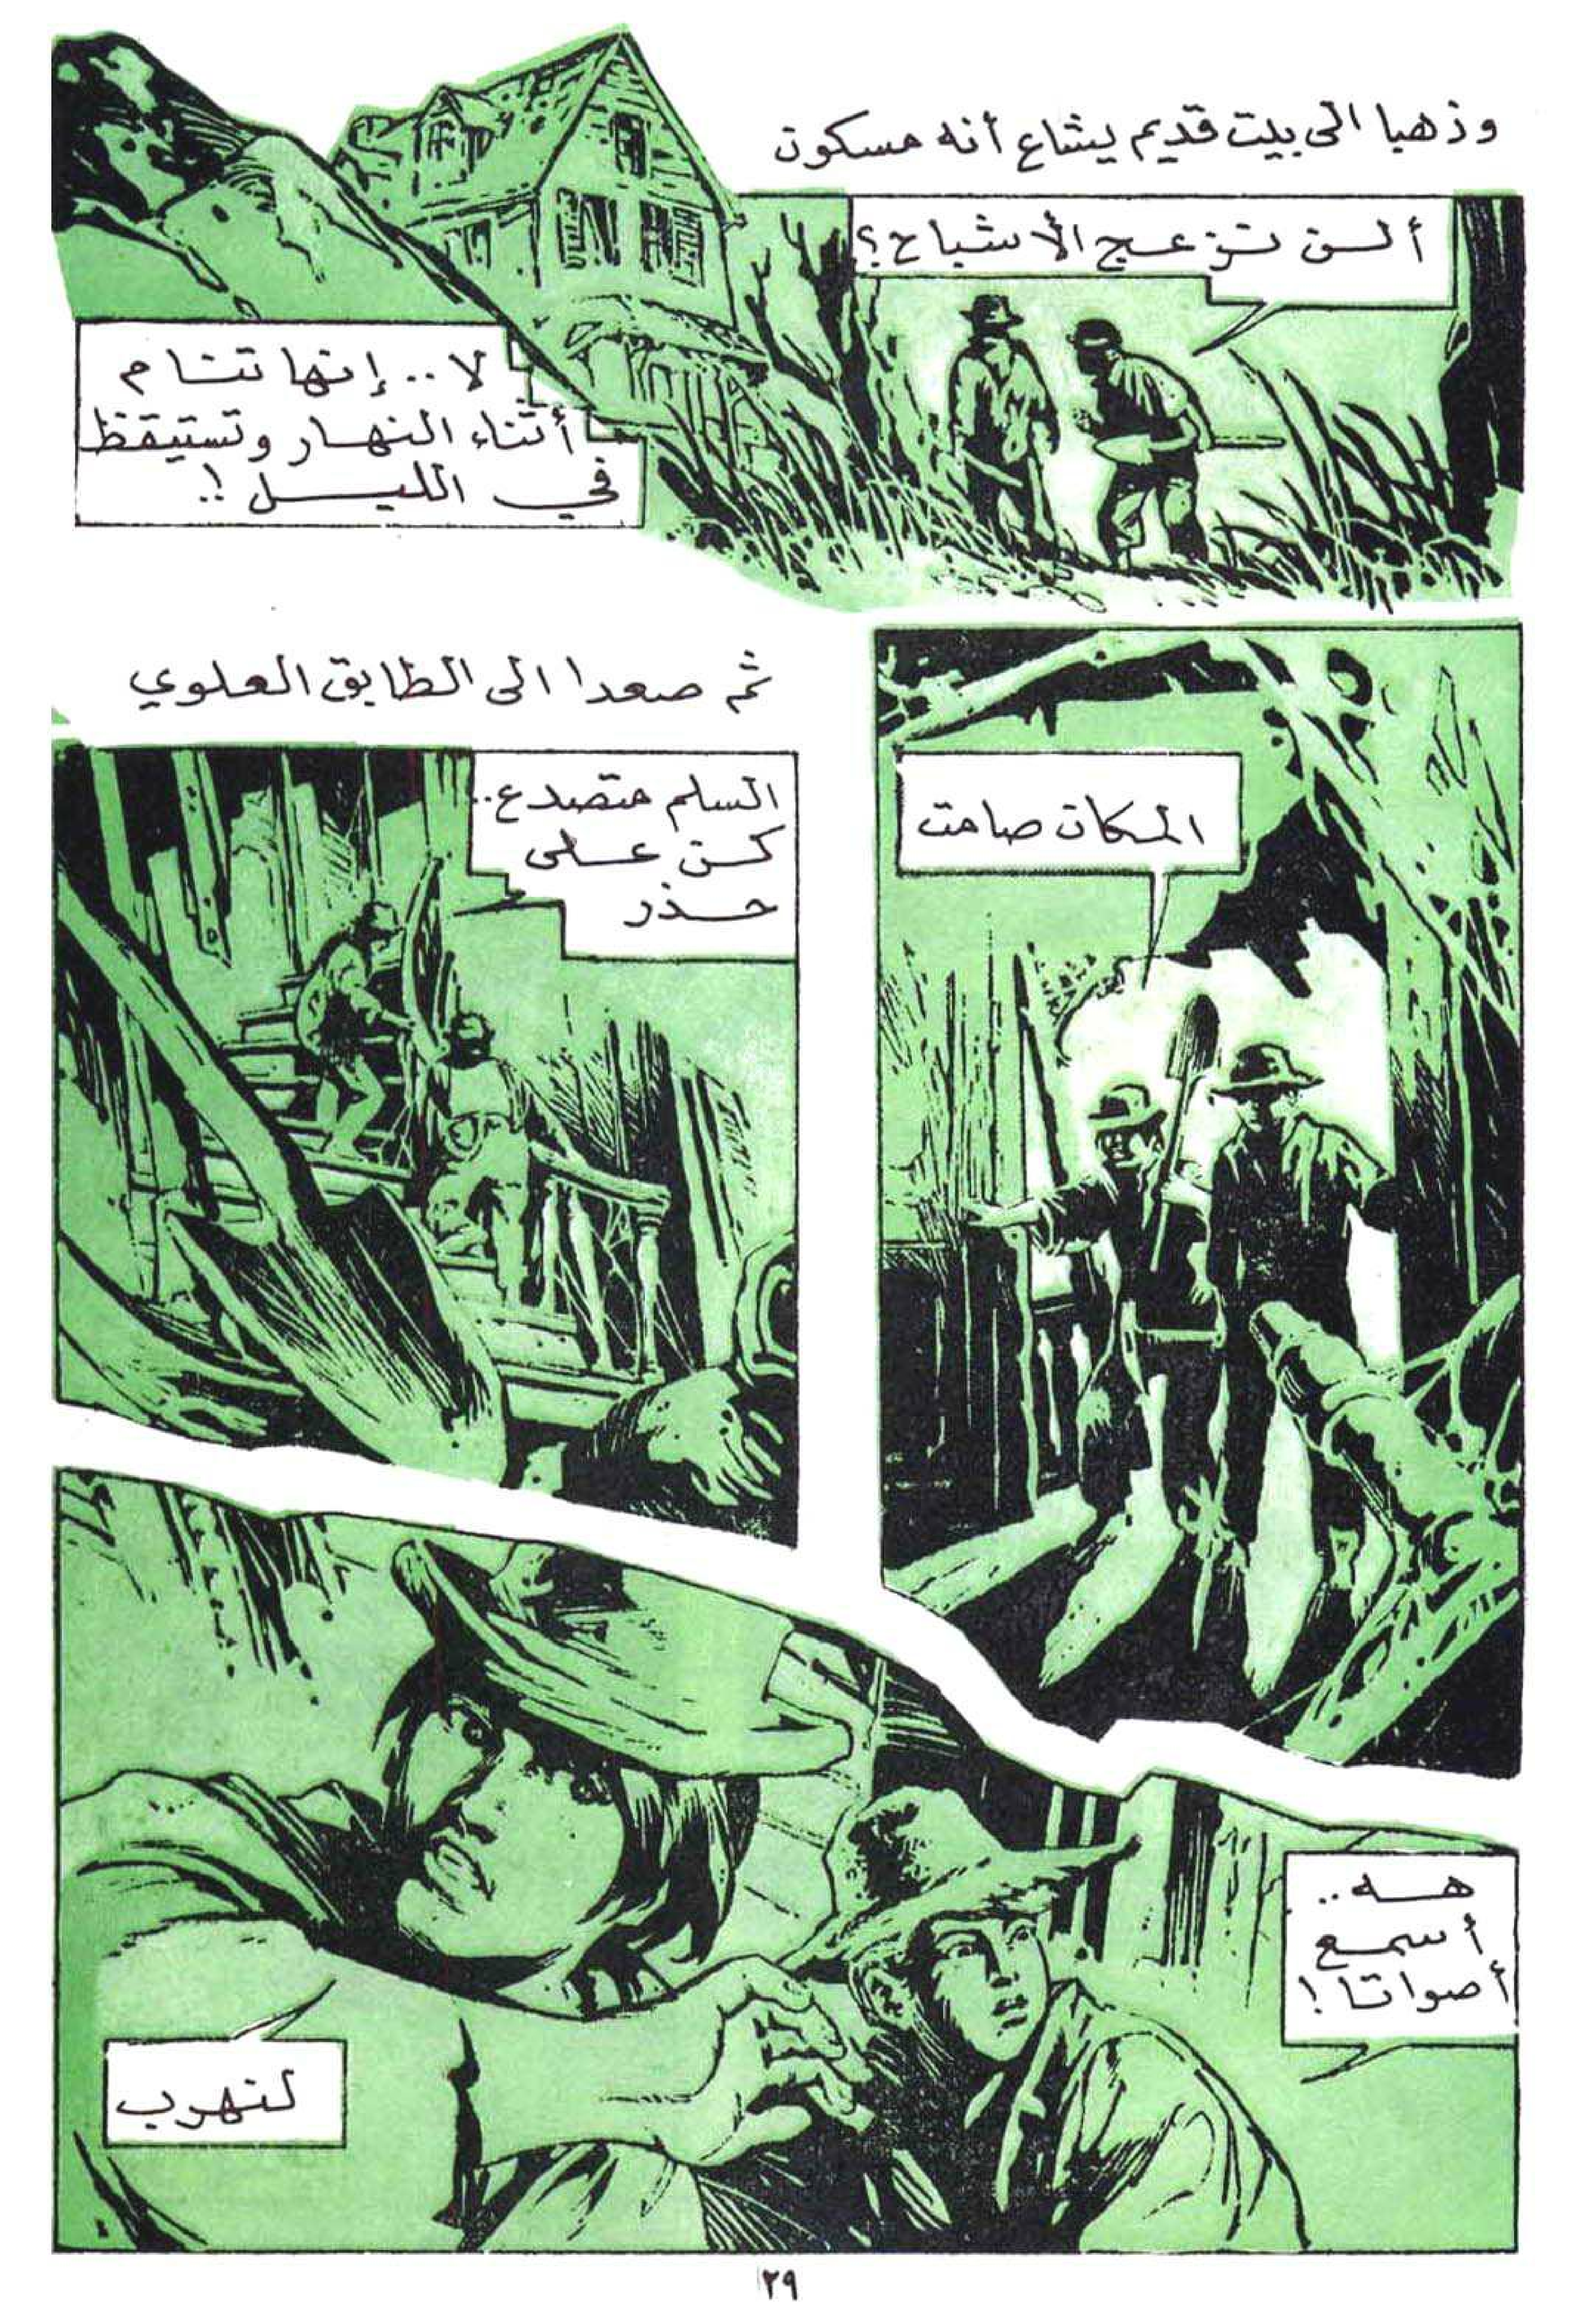 وذهبا الى بيت قديم يشاع أنه مسكون
ألن تزعج الأشباح؟
لا.. إنها تنام
أثناء النهار وتستيقظ
في الليل !..
المكان صامت
ثم صعدا الى الطابق العلوي
السلم متصدع..
كن على
حذر
هه..
أسمع
أصواتا !
لنهرب
٢٩